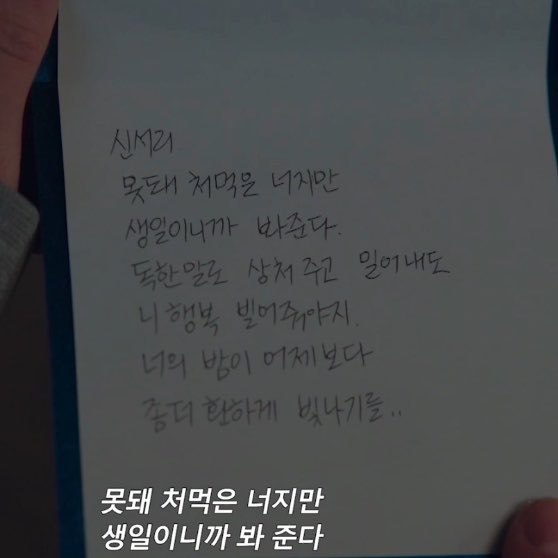 신서리
못돼 처먹은 너지만
생일이니까 봐준다.
독한말로 상처 주고 밀어내도
니 행복 빌어줘야지.
너의 밤이 어제보다
좀더 환하게 빛나기를..
못돼 처먹은 너지만
생일이니까 봐 준다